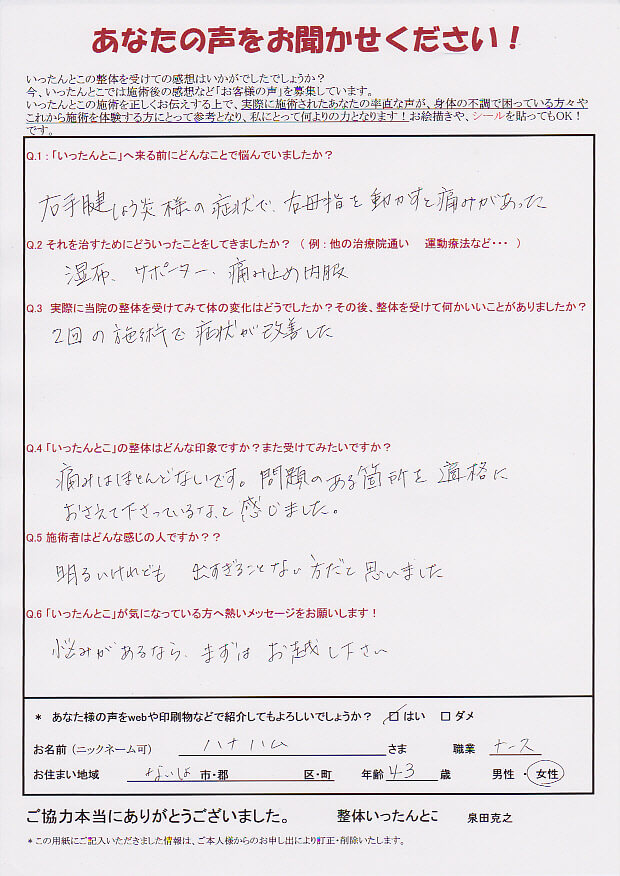 あなたの声をお聞かせください！
いったんとこの整体を受けての感想はいかがでしたでしょうか？
今、いったんとこでは施術後の感想など「お客様の声」を募集しています。
いったんとこの施術を正しくお伝えする上で、実際に施術されたあなたの率直な声が、身体の不調で困っている方々や
これから施術を体験する方にとって参考となり、私にとって何よりの力となります！お絵描きや、シールを貼ってもOK！
です。
Q.1：「いったんとこ」へ来る前にどんなことで悩んでいましたか？
右手腱しょう炎様の症状で、右母指を動かすと痛みがあった
Q.2 それを治すためにどういったことをしてきましたか？（例：他の治療院通い　運動療法など・・・）
湿布、サポーター、痛み止め内服
Q.3 実際に当院の整体を受けてみて体の変化はどうでしたか？その後、整体を受けて何かいいことがありましたか？
2回の施術で症状が改善した
Q.4 「いったんとこ」の整体はどんな印象ですか？また受けてみたいですか？
痛みはほとんどないです。問題のある箇所を適格に
おさえて下さっているな、と感じました。
Q.5 施術者はどんな感じの人ですか？？
明るいけれども 出すぎることない方だと思いました
Q.6 「いったんとこ」が気になっている方へ熱いメッセージをお願いします！
悩みがあるなら、まずはお越し下さい
＊ あなた様の声をwebや印刷物などで紹介してもよろしいでしょうか？ ☑はい □ダメ
お名前（ニックネーム可） ハナハム さま 職業 ナース
お住まい地域 ないしょ 市・郡 区・町 年齢 43 歳 男性・女性
ご協力本当にありがとうございました。 整体いったんとこ 泉田克之
＊この用紙にご記入いただきました情報は、ご本人様からのお申し出により訂正・削除いたします。